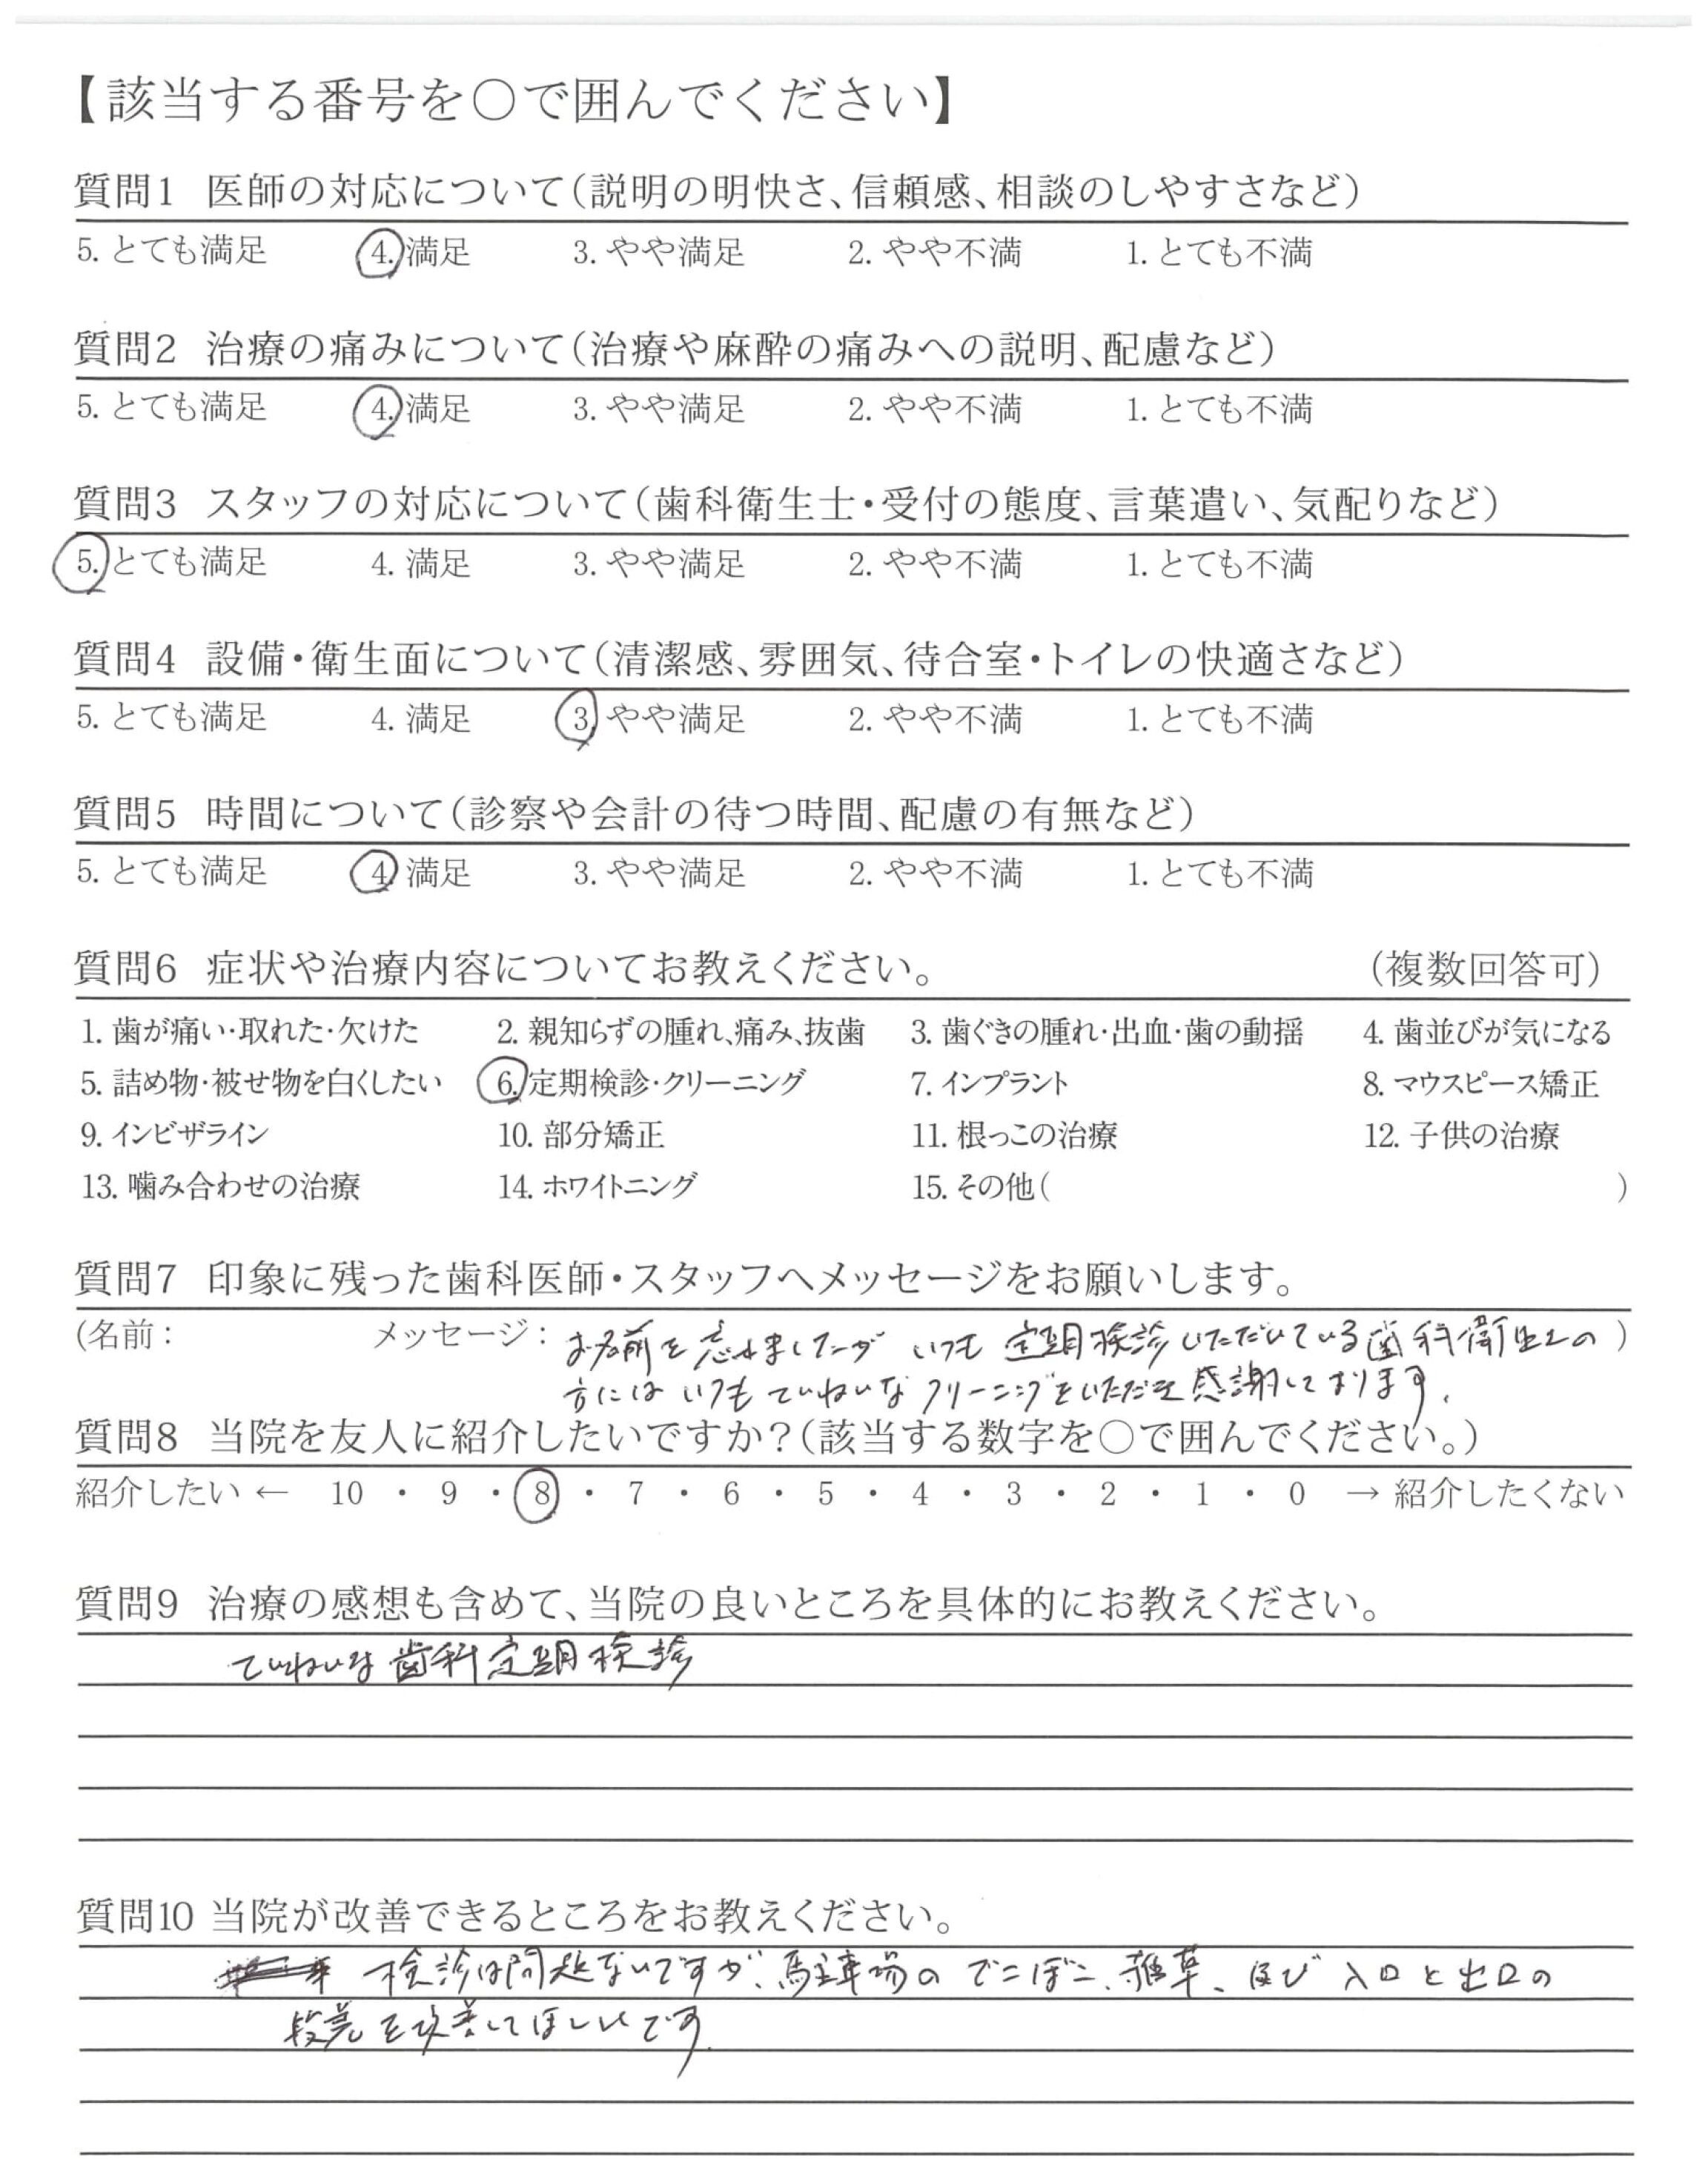 【該当する番号を○で囲んでください】
質問1 医師の対応について(説明の明快さ、信頼感、相談のしやすさなど)
5. とても満足 4. 満足 3. やや満足 2. やや不満 1. とても不満
質問2 治療の痛みについて(治療や麻酔の痛みへの説明、配慮など)
5. とても満足 4. 満足 3. やや満足 2. やや不満 1. とても不満
質問3 スタッフの対応について(歯科衛生士・受付の態度、言葉遣い、気配りなど)
5. とても満足 4. 満足 3. やや満足 2. やや不満 1. とても不満
質問4 設備・衛生面について(清潔感、雰囲気、待合室・トイレの快適さなど)
5. とても満足 4. 満足 3. やや満足 2. やや不満 1. とても不満
質問5 時間について(診察や会計の待つ時間、配慮の有無など)
5. とても満足 4. 満足 3. やや満足 2. やや不満 1. とても不満
質問6 症状や治療内容についてお教えください。 (複数回答可)
1. 歯が痛い・取れた・欠けた 2. 親知らずの腫れ、痛み、抜歯 3. 歯ぐきの腫れ・出血・歯の動揺 4. 歯並びが気になる
5. 詰め物・被せ物を白くしたい 6. 定期検診・クリーニング 7. インプラント 8. マウスピース矯正
9. インビザライン 10. 部分矯正 11. 根っこの治療 12. 子供の治療
13. 噛み合わせの治療 14. ホワイトニング 15. その他( )
質問7 印象に残った歯科医師・スタッフへメッセージをお願いします。
(名前: メッセージ: お名前を忘れましたが いつも 定期検診いただいている歯科衛生士の )
方には いつも ていねいな クリーニングをいただき感謝しております。
質問8 当院を友人に紹介したいですか?(該当する数字を○で囲んでください。)
紹介したい ← 10 ・ 9 ・ 8 ・ 7 ・ 6 ・ 5 ・ 4 ・ 3 ・ 2 ・ 1 ・ 0 → 紹介したくない
質問9 治療の感想も含めて、当院の良いところを具体的にお教えください。
ていねいな歯科定期検診
質問10 当院が改善できるところをお教えください。
検診は問題ないですが、駐車場の でこぼこ、雑草、及び 入口と出口の
段差を改善してほしいです。